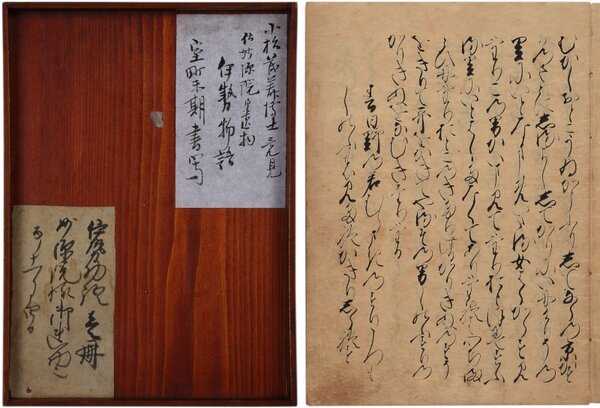 むかしおとこうゐかうふりしてならの京かす
かのさとにしるよししてかりにいにけりその
里にいとなまめいたる女はらからすみ
けりこの男かいま見てけりおもほえすふ
る里にいとはしたなくてありけれは心ちま
とひにけりおとこのきたりけるかりきぬのすそ
をきりて哥をかきてやるその男しのふすりの
かりきぬをなむきたりける
春日野の若むらさきのすり衣
しのふのみたれかきりしられす
小松茂美博士
伊勢物語
室町末期書写
壱冊